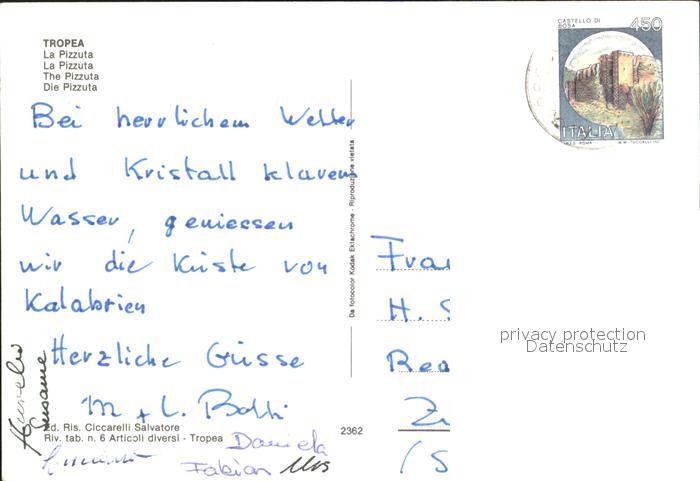 TROPEA
La Pizzuta
La Pizzuta
The Pizzuta
Die Pizzuta
Bei herrlichem Wetter
und Kristall klarem
Wasser, geniessen
wir die Küste von
Kalabrien
Herzliche Grüsse
M + L.
Susanne
Daniela
Fabian Urs
Ed. Ris. Ciccarelli Salvatore
Riv. tab. n. 6 Articoli diversi - Tropea
2362
Da fotocolor Kodak Ektachrome - Riproduzione vietata
CASTELLO DI
BOSA
450
ITALIA
Frau
H.
privacy protection
Datenschutz